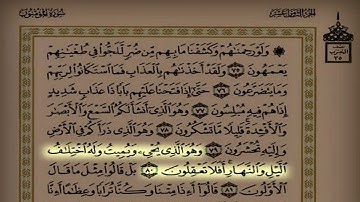 سورة المؤمنون
الجزء الثامن عشر
۞ وَلَوْ رَحِمْنَاهُمْ وَكَشَفْنَا مَا بِهِم مِّن ضُرٍّ لَّلَجُّوا۟ فِى طُغْيَـٰنِهِمْ
يَعْمَهُونَ ٧٥ وَلَقَدْ أَخَذْنَـٰهُم بِٱلْعَذَابِ فَمَا ٱسْتَكَانُوا۟ لِرَبِّهِمْ
وَمَا يَتَضَرَّعُونَ ٧٦ حَتَّىٰٓ إِذَا فَتَحْنَا عَلَيْهِم بَابًا ذَا عَذَابٍ شَدِيدٍ
إِذَا هُمْ فِيهِ مُبْلِسُونَ ٧٧ وَهُوَ ٱلَّذِىٓ أَنشَأَ لَكُمُ ٱلسَّمْعَ وَٱلْأَبْصَـٰرَ
وَٱلْأَفْـِٔدَةَ قَلِيلًا مَّا تَشْكُرُونَ ٧٨ وَهُوَ ٱلَّذِى ذَرَأَكُمْ فِى ٱلْأَرْضِ
وَإِلَيْهِ تُحْشَرُونَ ٧٩ وَهُوَ ٱلَّذِى يُحْىِۦ وَيُمِيتُ وَلَهُ ٱخْتِلَـٰفُ
ٱلَّيْلِ وَٱلنَّهَارِ أَفَلَا تَعْقِلُونَ ٨٠ بَلْ قَالُوا۟ مِثْلَ مَا قَالَ
ٱلْأَوَّلُونَ ٨١ قَالُوٓا۟ أَءِذَا مِتْنَا وَكُنَّا تُرَابًا وَعِظَـٰمًا أَءِنَّا
الحزب
٣٥